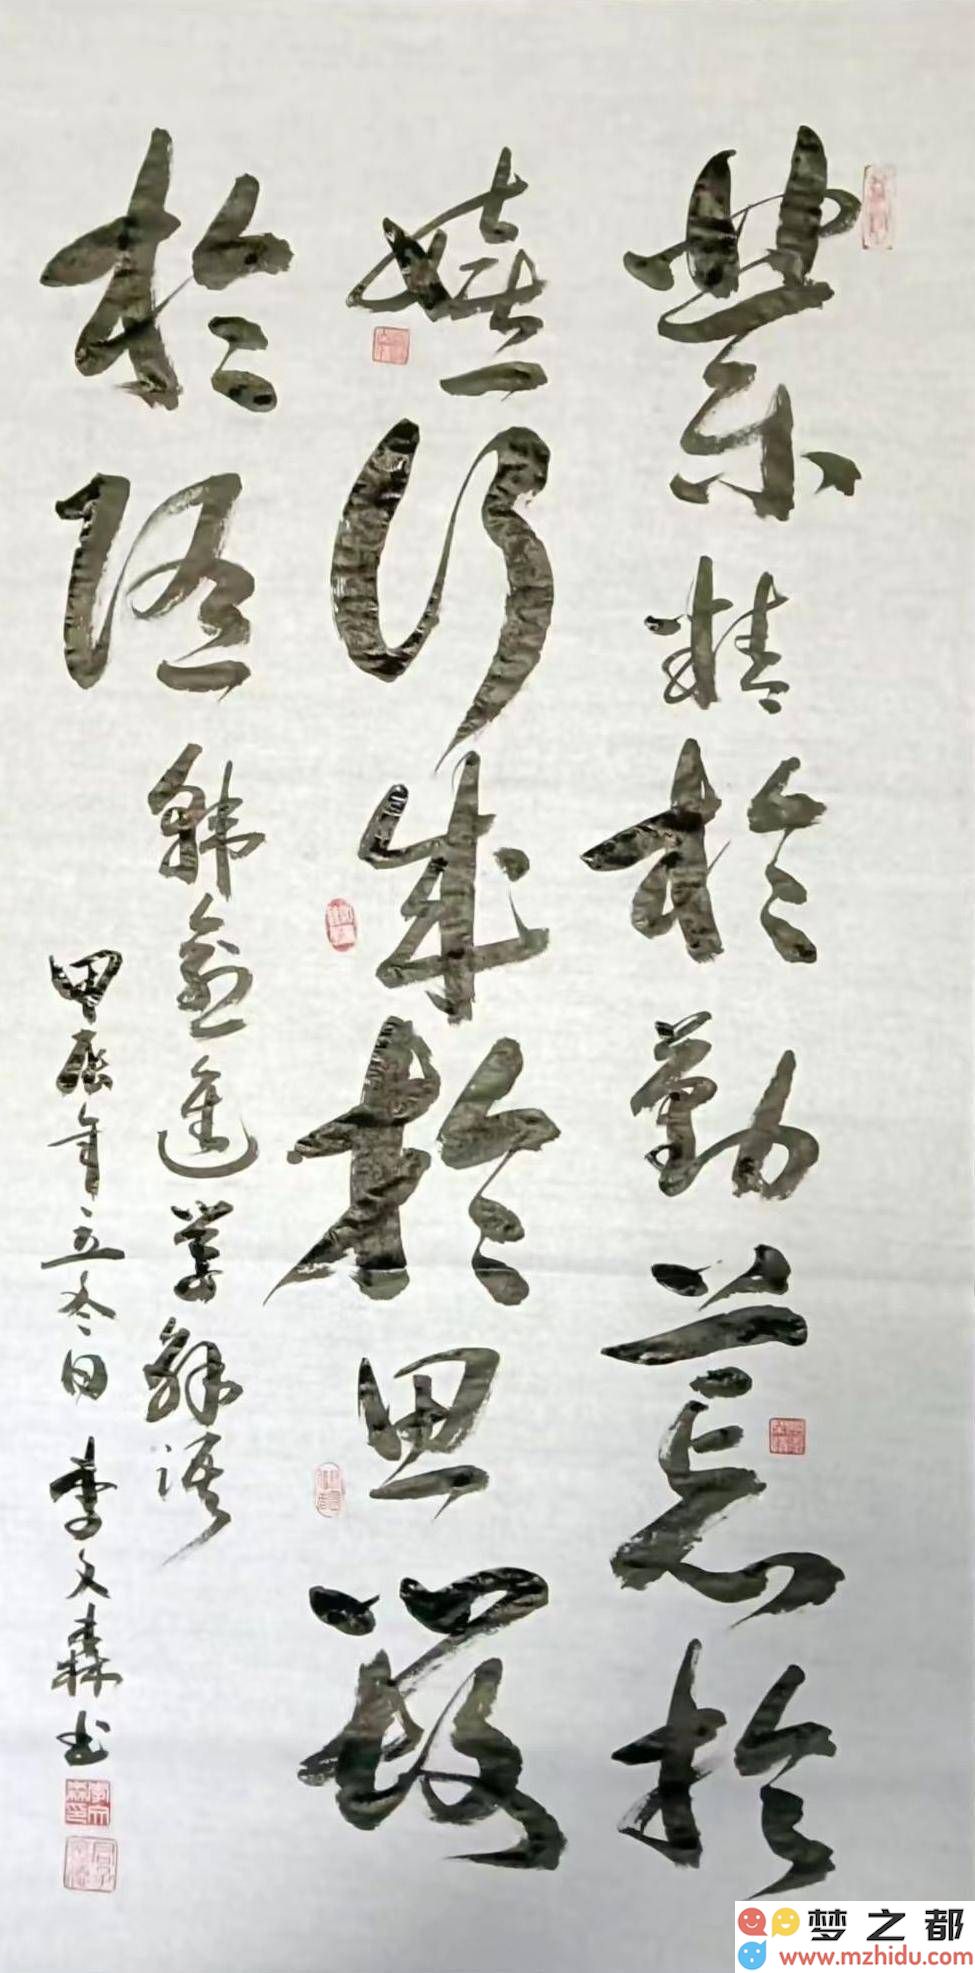 業精於勤荒於
嬉行成於思毀
於随
韓愈進學解語
甲辰年立冬日 李文森书
李文森印
梦之都
www.mzhidu.com